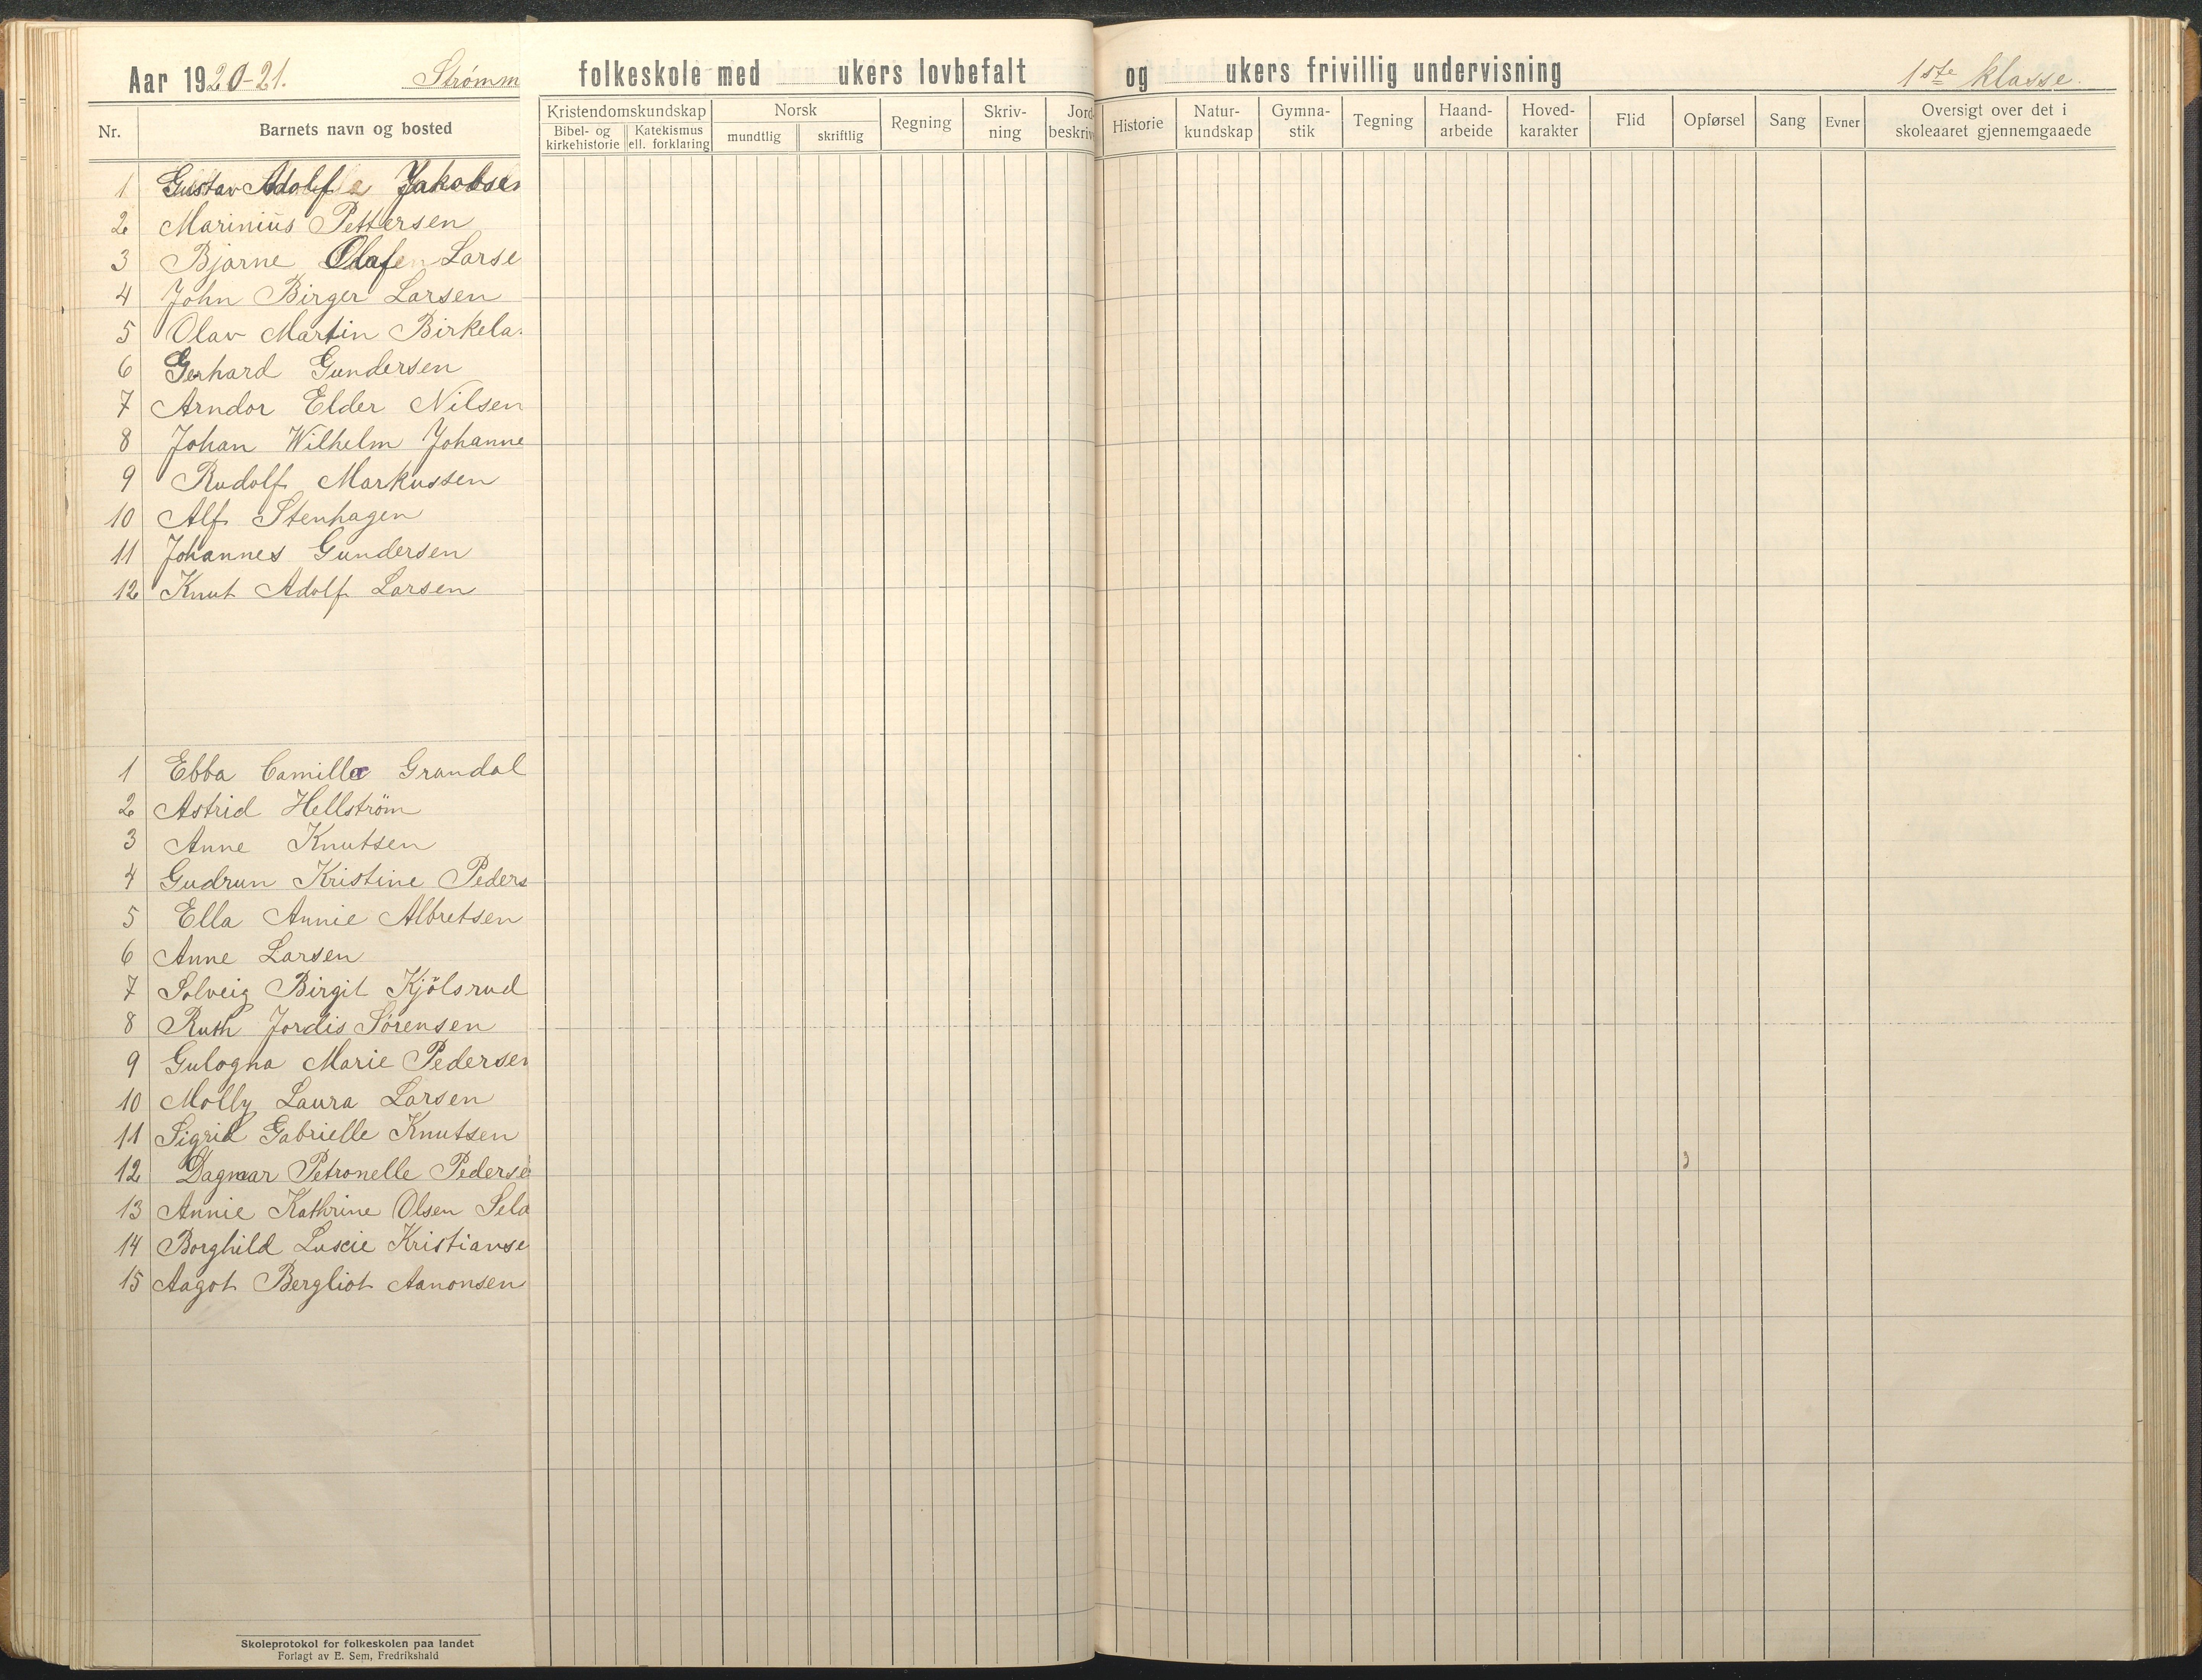 Aar 1920-21. Strømm folkeskole med ukers lovbefalt og ukers frivillig undervisning 1ste klasse.
Nr. Barnets navn og bosted Kristendomskundskap Norsk Regning Skriv-ning Jord beskriv Historie Natur-kundskap Gymna-stik Tegning Haand-arbeide Hoved-karakter Flid Opførsel Sang Evner Oversigt over det i skoleaaret gjennemgaaede
Bibel- og kirkehistorie Katekismus ell. forklaring mundtlig skriftlig
1 Gustav Adolf Jakobsen
2 Marinius Pettersen
3 Bjarne Olaf Larse
4 John Birger Larsen
5 Olav Martin Birkela
6 Gerhard Gundersen
7 Arndor Elder Nilsen
8 Johan Wilhelm Johanne
9 Rudolf Markussen
10 Alf Stenhagen
11 Johannes Gundersen
12 Knut Adolf Larsen
1 Ebba Camilla Grandal
2 Astrid Hellström
3 Anne Knutsen
4 Gudrun Kristine Peders
5 Ella Annie Albretsen
6 Anne Larsen
7 Solveig Birgit Kjölsrud
8 Ruth Jordis Sörensen
9 Gulogna Marie Pedersen
10 Molly Laura Larsen
11 Sigrid Gabrielle Knutsen
12 Dagmar Petronelle Pederse
13 Annie Kathrine Olsen Sela
14 Borghild Luscie Kristianse
15 Aagot Bergliot Aanonsen
Skoleprotokol for folkeskolen paa landet
Forlagt av E. Sem, Fredrikshald